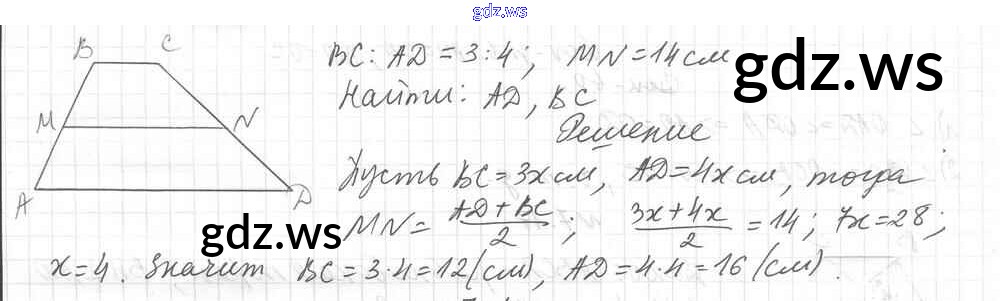 gdz.ws
B C
BC : AD = 3 : 4 ; MN = 14 см
gdz.ws
Найти: AD, BC
M N
Решение
A D
Пусть BC = 3x см, AD = 4x см, тогда
gdz.ws
MN = (AD + BC)/2 ; (3x + 4x)/2 = 14 ; 7x = 28 ;
x = 4. Значит BC = 3·4 = 12 (см), AD = 4·4 = 16 (см).